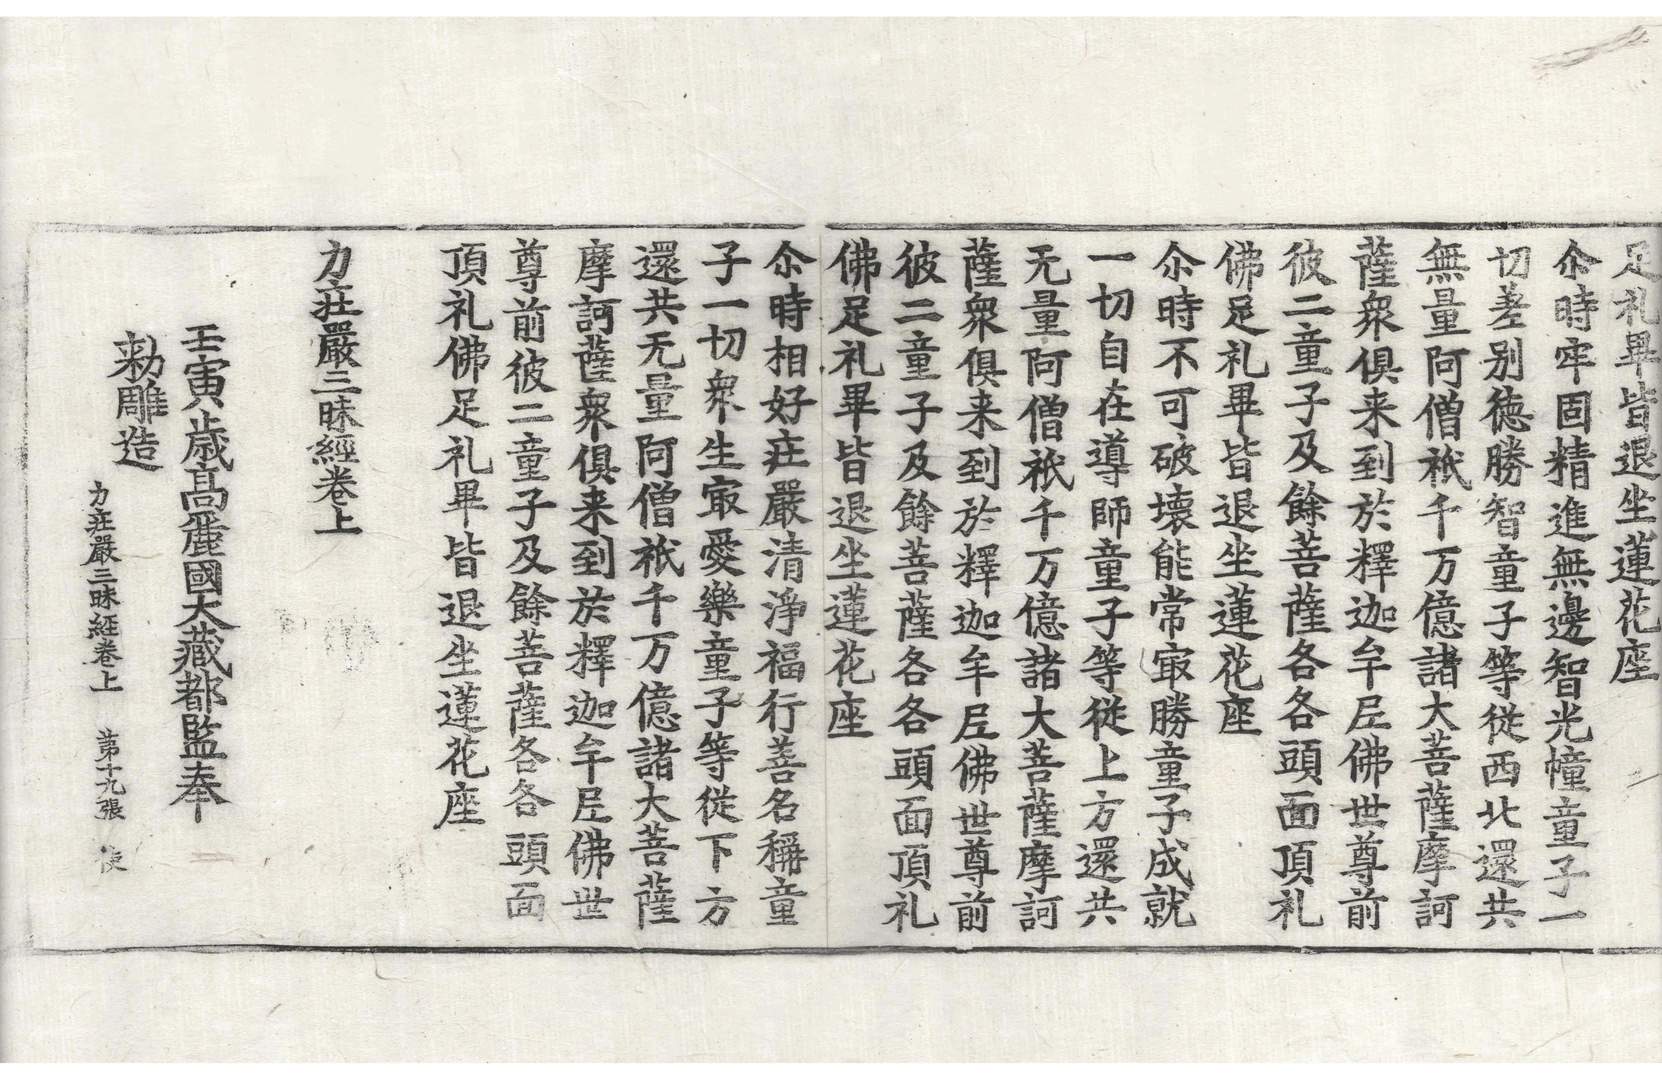 足礼畢皆退坐蓮花座
尒時牢固精進無邊智光幢童子一
切差别徳勝智童子等從西北還共
無量阿僧祇千万億諸大菩薩摩訶
薩衆俱来到於釋迦牟尼佛世尊前
彼二童子及餘菩薩各各頭面頂礼
佛足礼畢皆退坐蓮花座
尒時不可破壊能常㝡勝童子成就
一切自在導師童子等從上方還共
无量阿僧祇千万億諸大菩薩摩訶
薩衆俱来到於釋迦牟尼佛世尊前
彼二童子及餘菩薩各各頭面頂礼
佛足礼畢皆退坐蓮花座
尒時相好莊嚴清淨福行善名稱童
子一切衆生㝡愛樂童子等從下方
還共无量阿僧祇千万億諸大菩薩
摩訶薩衆俱来到於釋迦牟尼佛世
尊前彼二童子及餘菩薩各各頭面
頂礼佛足礼畢皆退坐蓮花座
力莊嚴三昧經卷上
壬寅歳高麗國大藏都監奉
勅雕造
力莊嚴三昧経卷上 第十九張 使